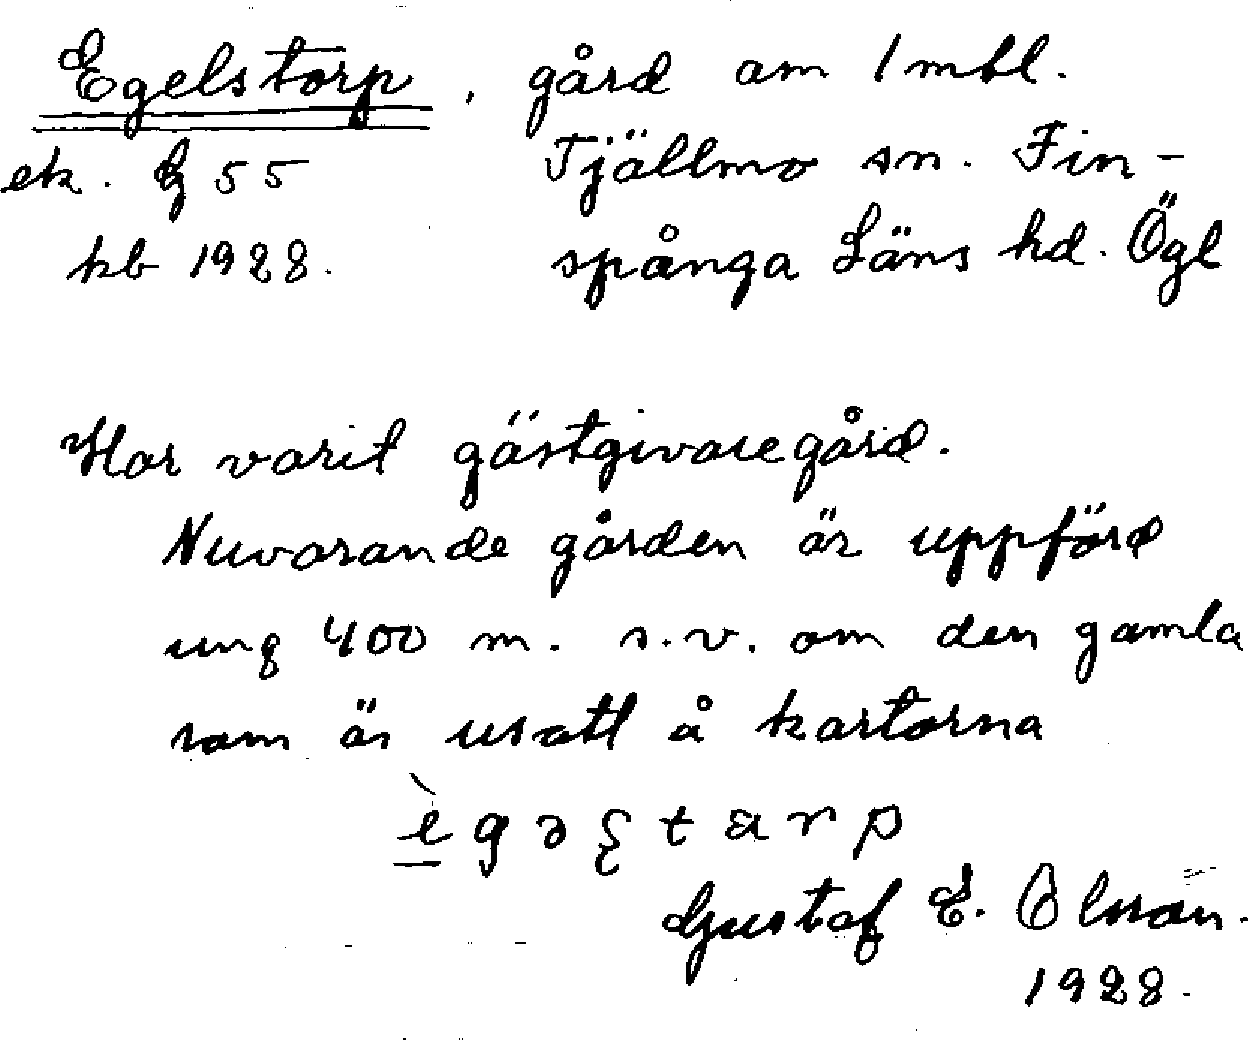 Egelstorp, gård om 1 mtl.
ek. 55 Tjällmo sn. Fin-
kb 1928. spånga Läns hd. Ögl
Har varit gästgivaregård.
Nuvarande gården är uppförd
ung 400 m. s.v. om den gamla
som är utsatt å kartorna
ègəʂtarp
Gustaf E. Olsson.
1928.